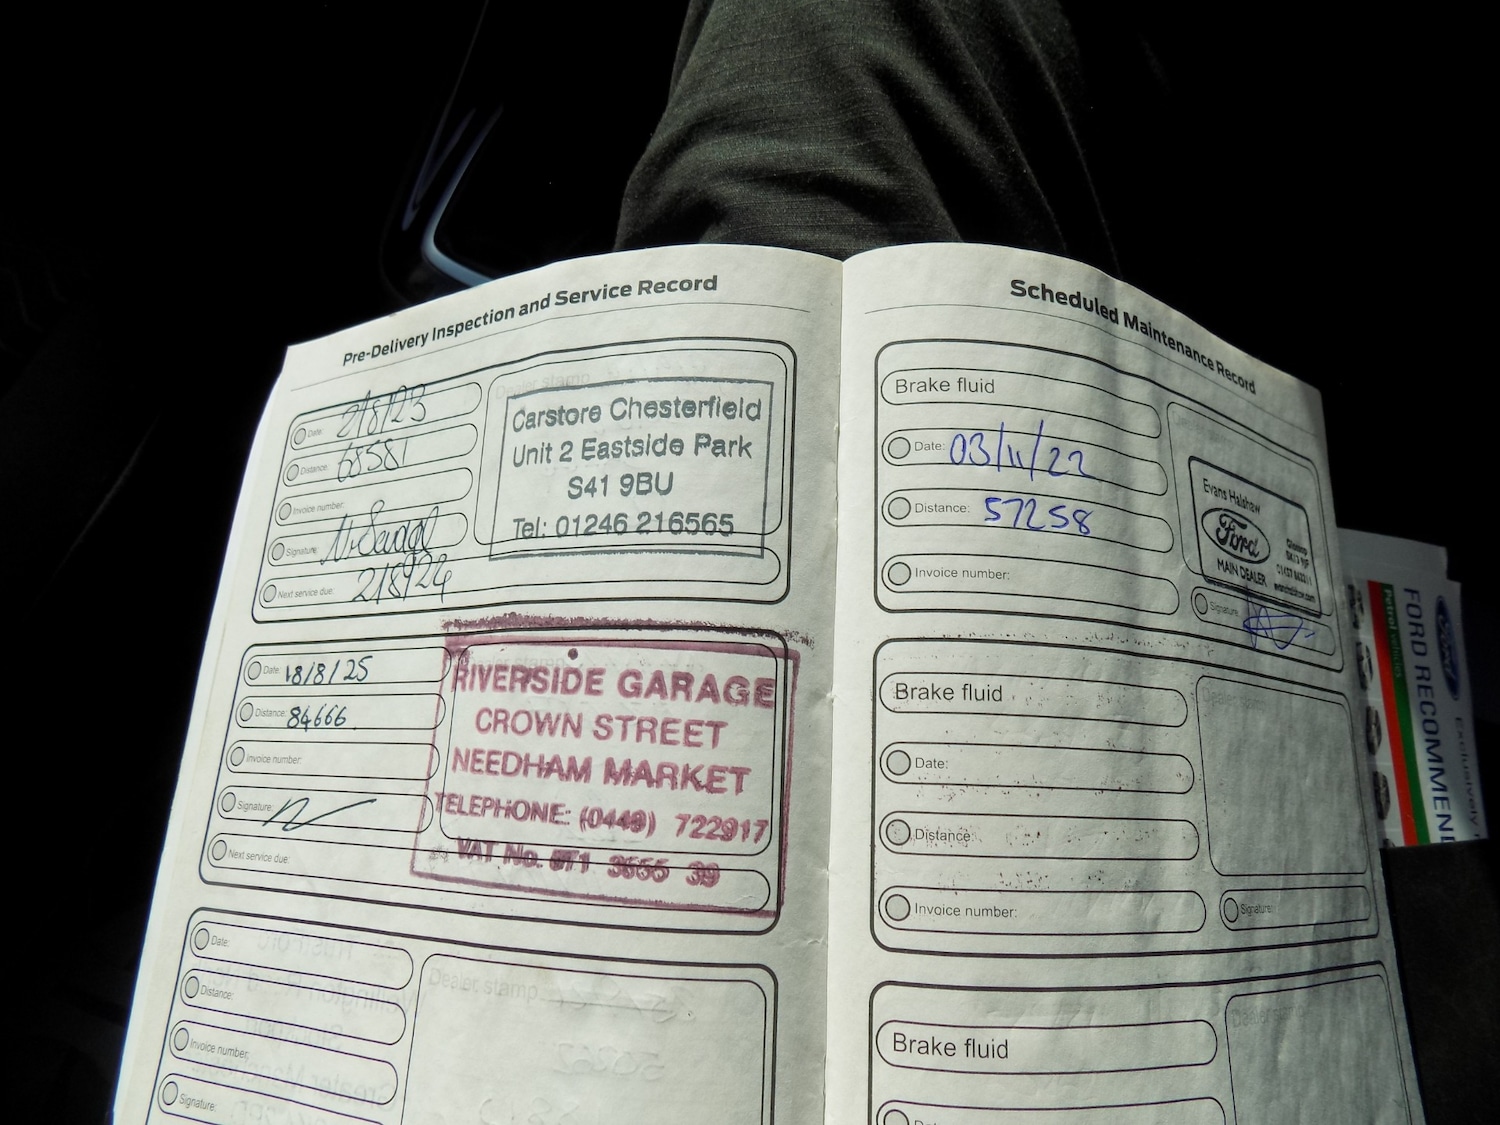 Pre-Delivery Inspection and Service Record
Date: 2/8/23
Distance: 68581
Invoice number:
Signature:
Next service due: 2/8/24
Dealer stamp
Carstore Chesterfield
Unit 2 Eastside Park
S41 9BU
Tel: 01246 216565
Date: 18/8/25
Distance: 84666
Invoice number:
Signature:
Next service due:
RIVERSIDE GARAGE
CROWN STREET
NEEDHAM MARKET
TELEPHONE: (0449) 722917
VAT No. 3655 39
Date:
Distance:
Invoice number:
Signature:
Dealer stamp
Scheduled Maintenance Record
Brake fluid
Date: 03/11/22
Distance: 57258
Invoice number:
Evans Halshaw
Ford
MAIN DEALER
Signature:
Brake fluid
Date:
Distance:
Invoice number:
Signature:
Brake fluid
Date:
Ford
FORD RECOMMEN
Exclusively
Petrol vehicles